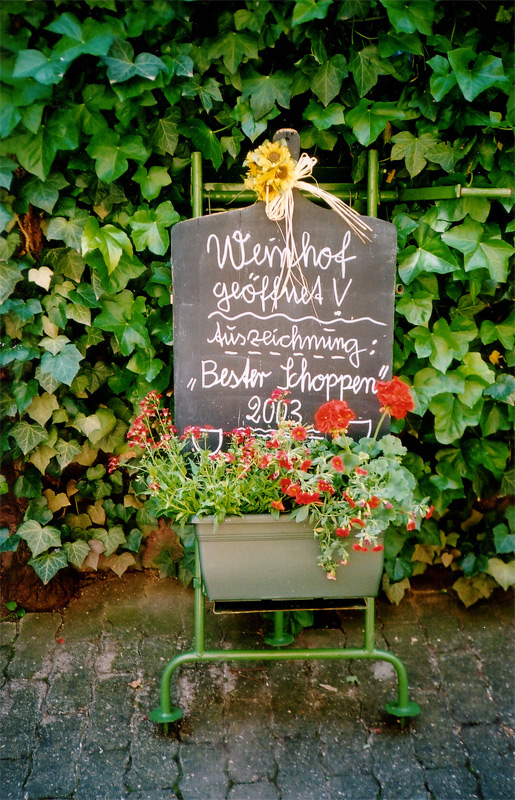 Weinhof
geöffnet !
Auszeichnung:
„Bester Schoppen"
2003